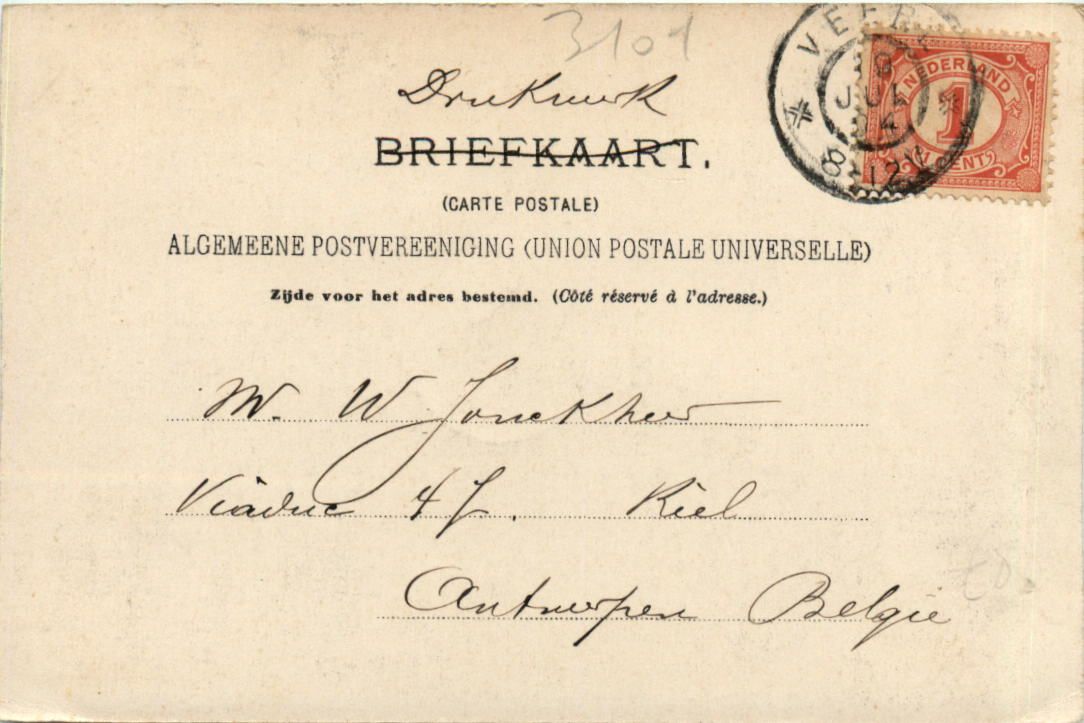 3101
Drukwerk
BRIEFKAART.
(CARTE POSTALE)
ALGEMEENE POSTVEREENIGING (UNION POSTALE UNIVERSELLE)
Zijde voor het adres bestemd. (Côté réservé à l'adresse.)
VEER
JUL
8-12V
NEDERLAND
1
1 CENT
M. W Jonckheer
Viaduc 47. Kiel
Antwerpen Belgie